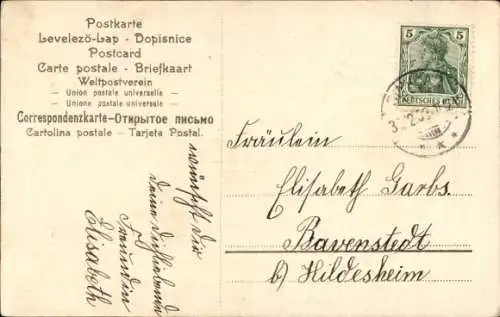 Postkarte
Levelező-Lap - Dopisnice
Postcard
Carte postale - Briefkaart
Weltpostverein
Union postale universelle
Unione postale universale
Correspondenzkarte-Открытое письмо
Cartolina postale - Tarjeta Postal.
5 5
DEUTSCHES REICH
Fräulein
Elisabeth Garbs.
Bavenstedt
b/ Hildesheim
wünscht dir
deine dichliebende
Freundin
Elisabeth